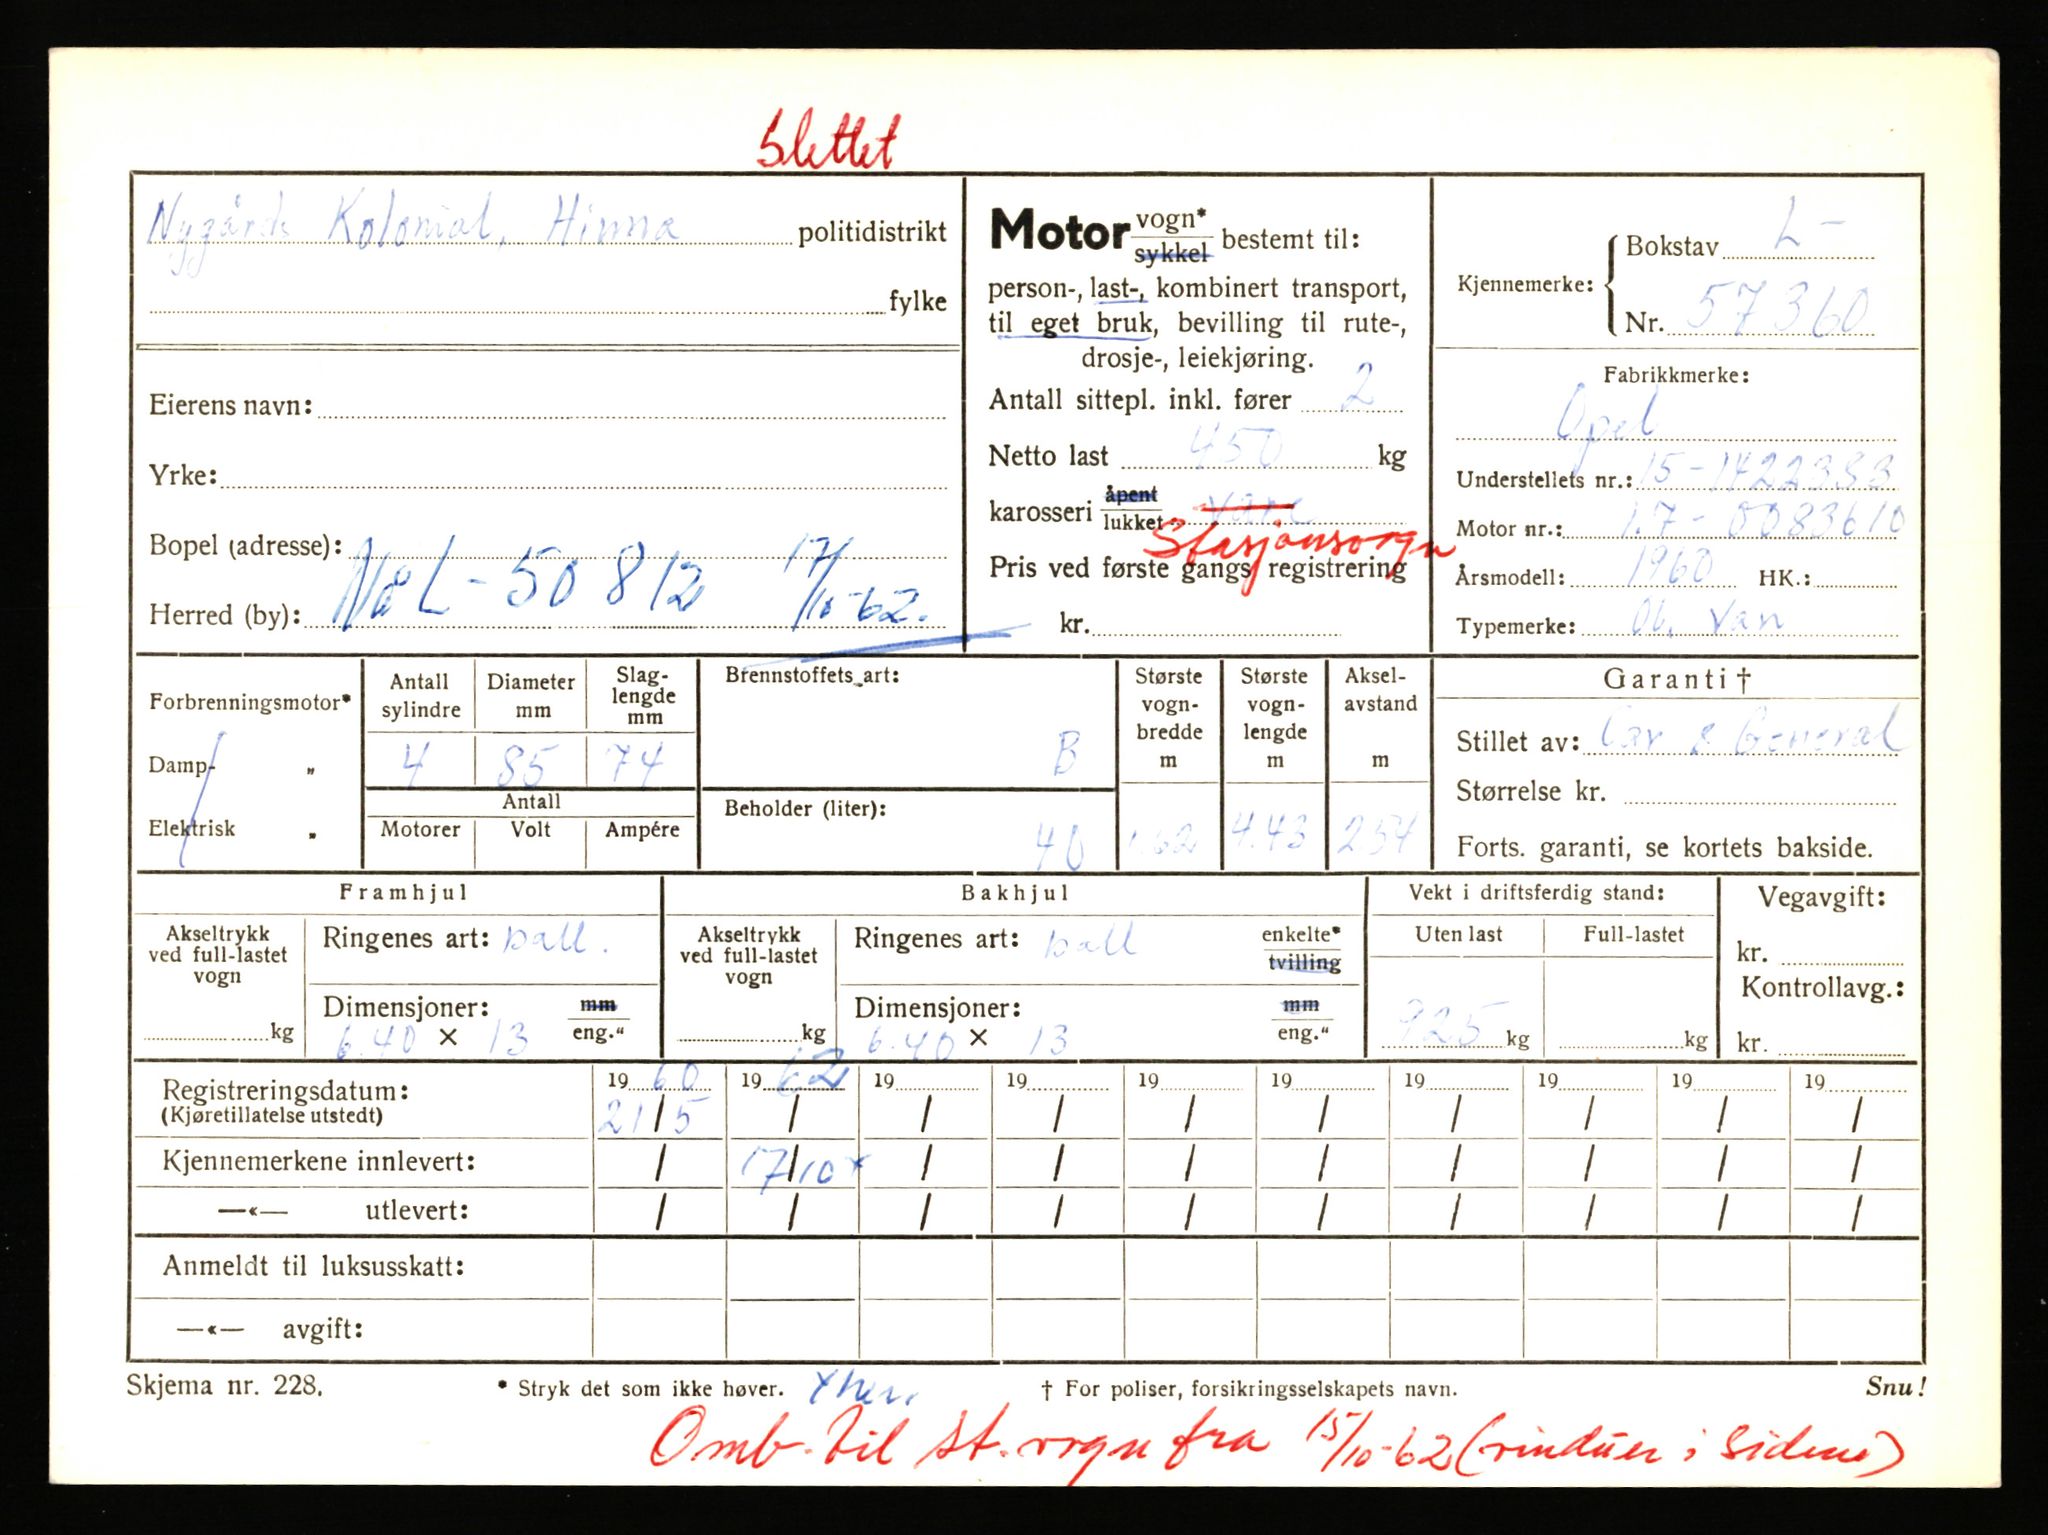 Slettet
Nygårds Kolonial, Hinna politidistrikt
fylke
Eierens navn:
Yrke:
Bopel (adresse):
Herred (by): Nå L-50812 17/10-62.
Motor vogn* / sykkel bestemt til:
person-, last-, kombinert transport,
til eget bruk, bevilling til rute-,
drosje-, leiekjøring.
Antall sittepl. inkl. fører 2
Netto last 450 kg
karosseri åpent / lukket Vare
Stasjonsvogn
Pris ved første gangs registrering
kr.
Kjennemerke: Bokstav L-
Nr. 57360
Fabrikkmerke:
Opel
Understellets nr.: 15-1422383
Motor nr.: 1.7-0083610
Årsmodell: 1960 HK.:
Typemerke: Ol. Van
Forbrenningsmotor*
Damp- „
Elektrisk „
Antall sylindre 4
Diameter mm 85
Slag-lengde mm 74
Antall
Motorer Volt Ampére
Brennstoffets art: B
Beholder (liter): 40
Største vogn-bredde m 1.62
Største vogn-lengde m 4.43
Aksel-avstand m 2.54
Garanti †
Stillet av: Car & General
Størrelse kr.
Forts. garanti, se kortets bakside.
Framhjul
Akseltrykk ved full-lastet vogn kg
Ringenes art: ball.
Dimensjoner: mm / eng.“
6.40 × 13
Bakhjul
Akseltrykk ved full-lastet vogn kg
Ringenes art: ball enkelte* / tvilling
Dimensjoner: mm / eng.“
6.40 × 13
Vekt i driftsferdig stand:
Uten last 925 kg
Full-lastet kg
Vegavgift:
kr.
Kontrollavg.:
kr.
Registreringsdatum: 1960 1962 19 19 19 19 19 19 19 19
(Kjøretillatelse utstedt) 21/5 / / / / / / / / /
Kjennemerkene innlevert: / 17/10 x / / / / / / / /
—«— utlevert: / / / / / / / / / /
Anmeldt til luksusskatt:
—«— avgift:
Skjema nr. 228. * Stryk det som ikke høver. x her. † For poliser, forsikringsselskapets navn. Snu!
Omb. til st.vogn fra 15/10-62 (vinduer i sidene)